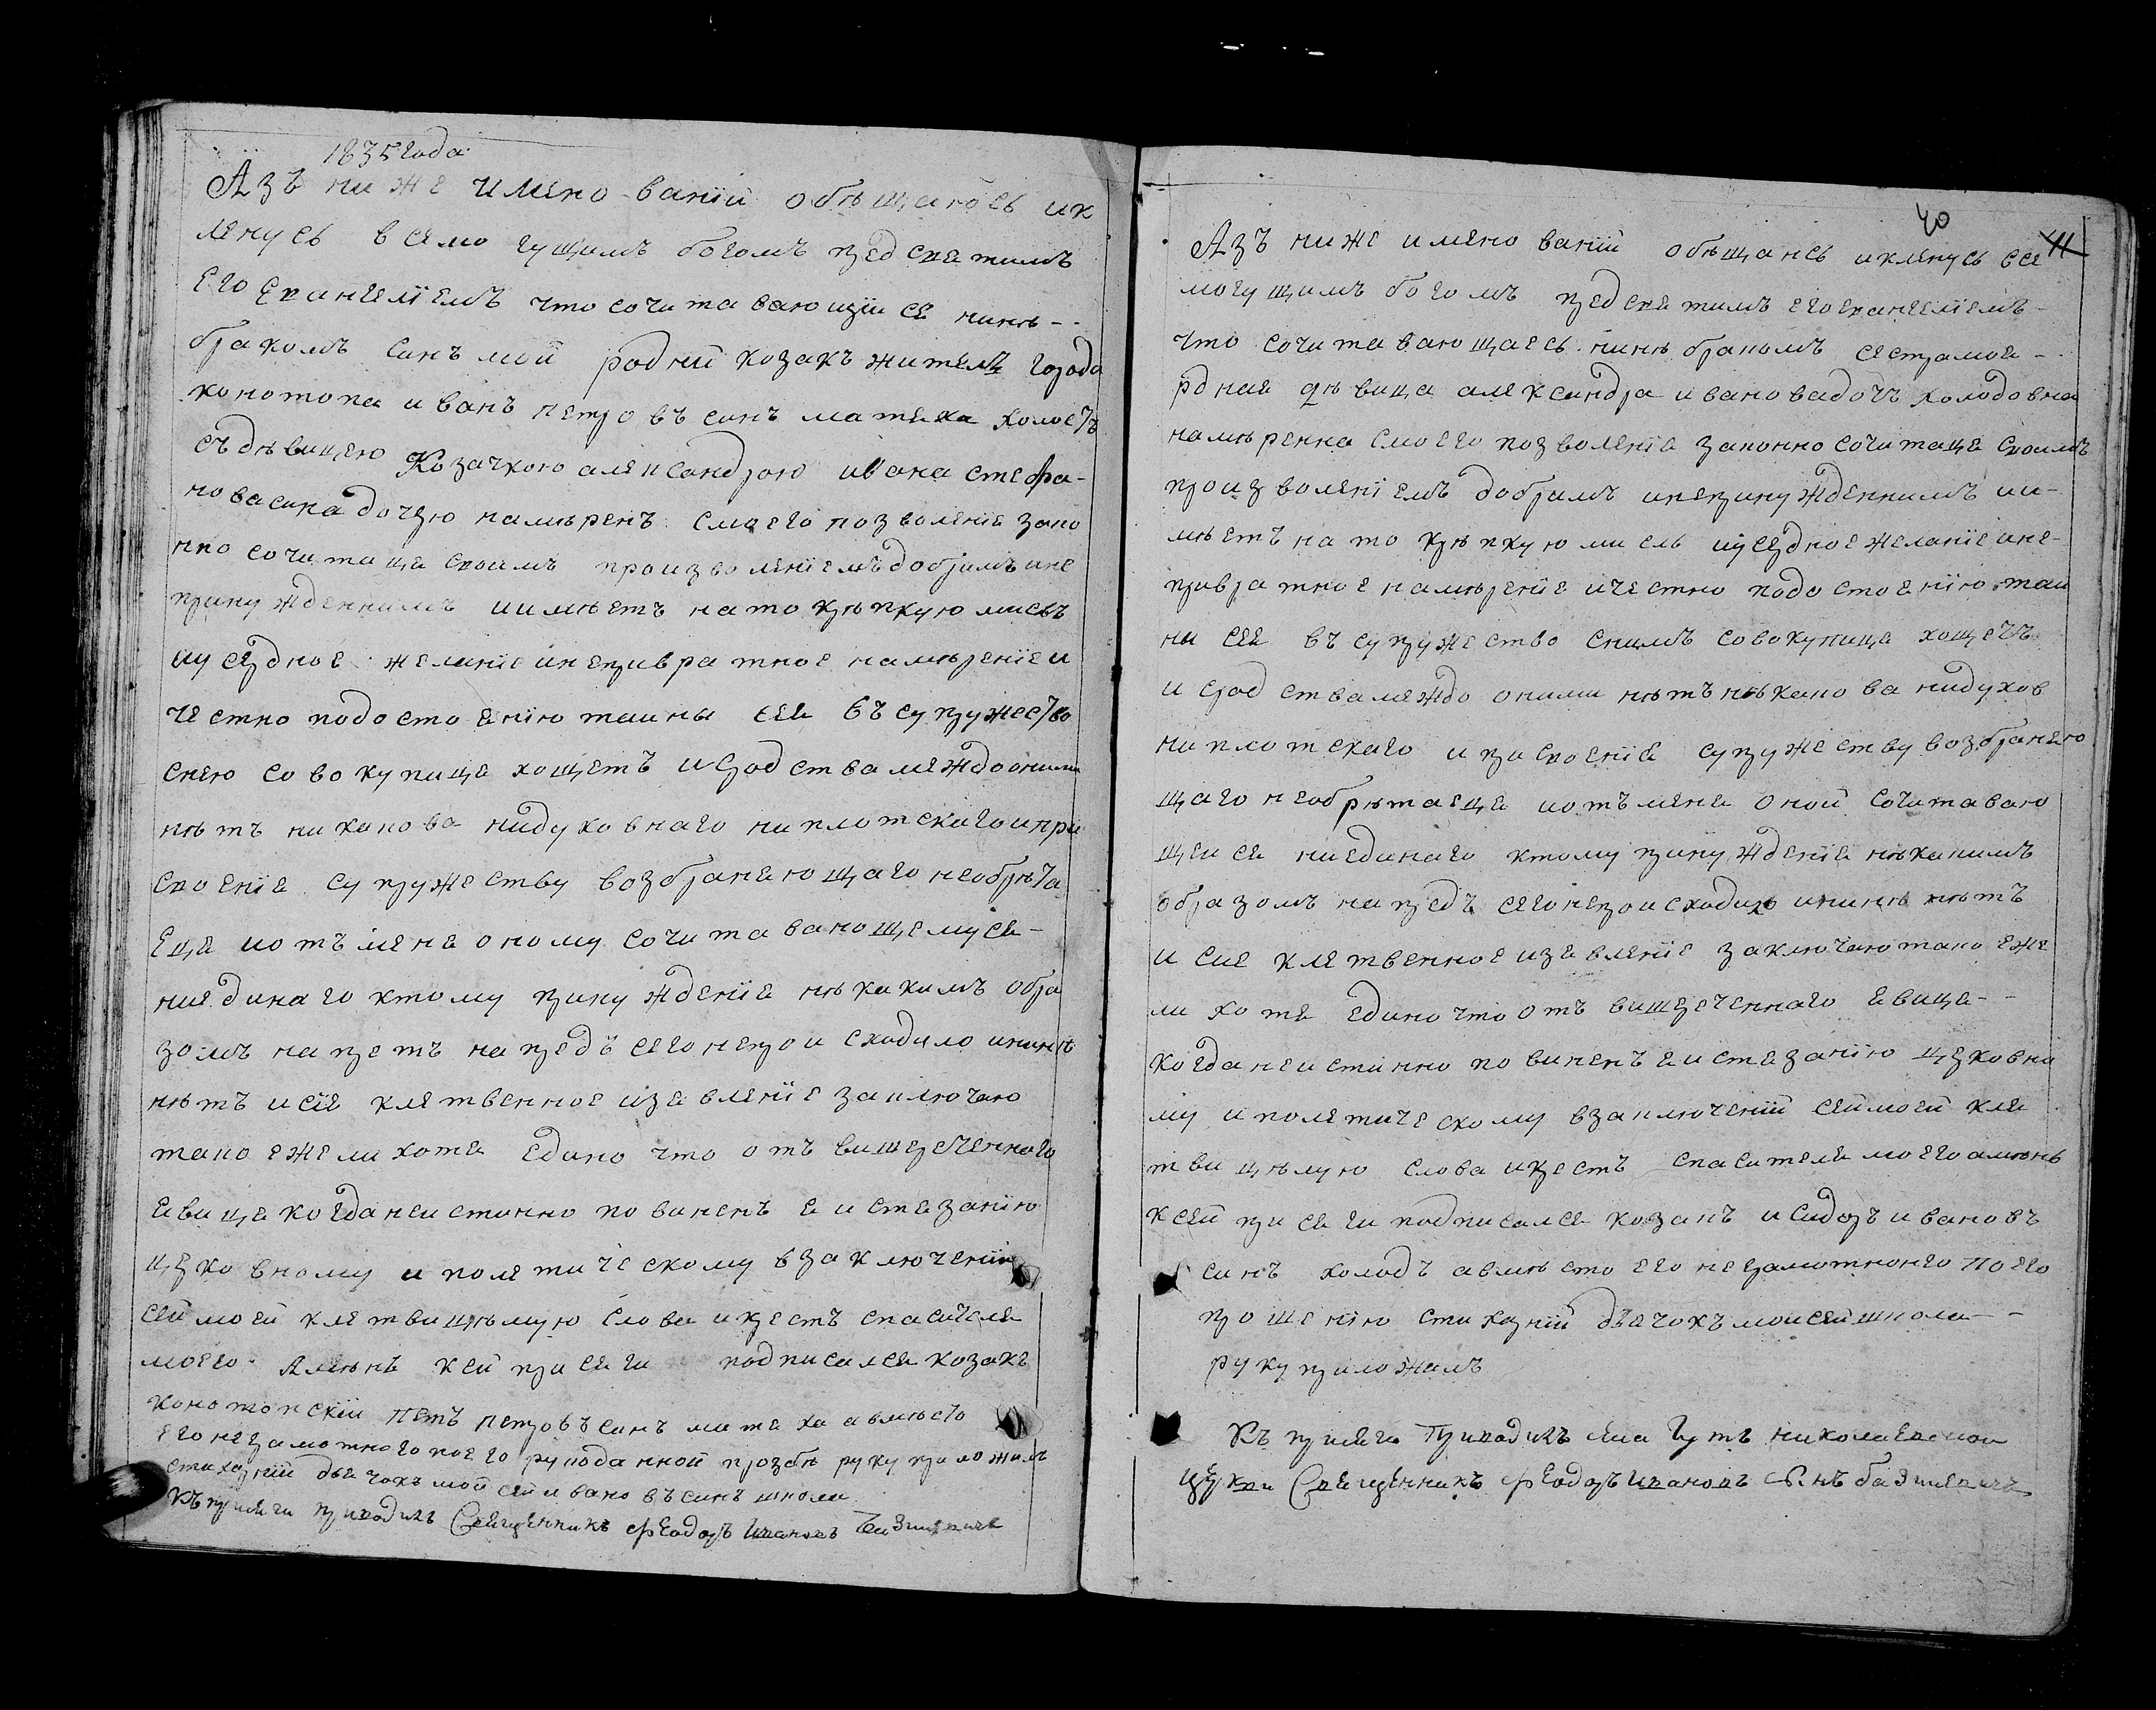 1835 года
Азъ ниже имено-ваній обѣщаюсь ик
ленусь всемогущимъ богомъ пред светимъ
его Евангеліемъ что сочитавающіи се нинѣ--
бракомъ синъ мой родній козакъ житель города
конотопа иванъ петровъ синъ матеха холостъ
съ дѣвицею Козачкою александрою ивана стефа-
нова сина дочерю намѣренъ смоего позволеніе зако
нно сочитаце своимъ произволеніемъ добримъ ине
принужденнимъ иимѣетъ на то крѣпкую мисль
иусердное желаніе инепривратное намѣреніе и
честно подостоенію таины сее въ супружество
снею совокупице хощетъ и сродства междо оними
нѣтъ никакова нидуховнаго ниплотскаго ипри
своеніе супружеству возбранеющаго необрѣта
еце иотъ мене оному сочитавающемусе-
ниединаго ктому принужденіе нѣкакимъ обра
зомъ напретъ напредъ сего непроисходило ининѣ
нѣтъ исіе клетвенное изевленіе заключаю
тако ежели хоте едино что отъ вишереченного
евице когда неистинно повиненъ е истезанію
церковному и полетическому взаключеніи
сеи моеи клетви цѣлую слова икрестъ спасителе
моего Аминь ксеи присеги подписалсе козакъ
конотопскіи петръ петровъ синъ матеха авмѣсто
его неграмотного поего рукоданной прозбѣ руку приложилъ
стихарній двечокъ мойсей ивановъ синъ школи
Къ присеги приводилъ Священникъ Феодоръ Ивановъ Базилевичъ
40
41
Азъ ниже именованій обѣщаюсь икленусь все
могущимъ богомъ пред светимъ его евангеліемъ-
что сочитавающаесь нинѣ бракомъ сестра мое-
рдная дѣвица александра иванова дочъ холодовна
намѣренна смоего позволеніе законно сочитаце своимъ
произволеніемъ добримъ инепринужденнимъ ии-
мѣетъ на то крѣпкую мисль иусердное желаніе ине-
привратное намѣреніе ичестно подостоенію таи
ни сее въ супружество снимъ совокупице хощетъ
и сродства междо оними нѣтъ нѣкакова нидухов
ниплотскаго и присвоеніе супружеству возбранею
щаго необрѣтаеце иотъ мене оной сочитаваю
щеисе ниединаго ктому принужденіе нѣкакимъ
образомъ напредъ сего непроисходило ининѣ нѣтъ
и сие клетвенное изевленіе заключаю тако еже
ли хоте едино что отъ вишереченнаго евице--
когда неистинно повиненъ е истезанію церковно
му и полетическому взаключеніи сеймоей кле
тви цѣлую слова икрестъ спасителе моего аминь
ксей присеги подписалсе козакъ исидоръ ивановъ
синъ холодъ авмѣсто его неграмотного поего
прошенію стихарній двечокъ моисей школа--
руку приложилъ
Къ присеги Приводилъ николаевской
церкви Священникъ Феодоръ Ивановъ С̃нъ базилевичъ